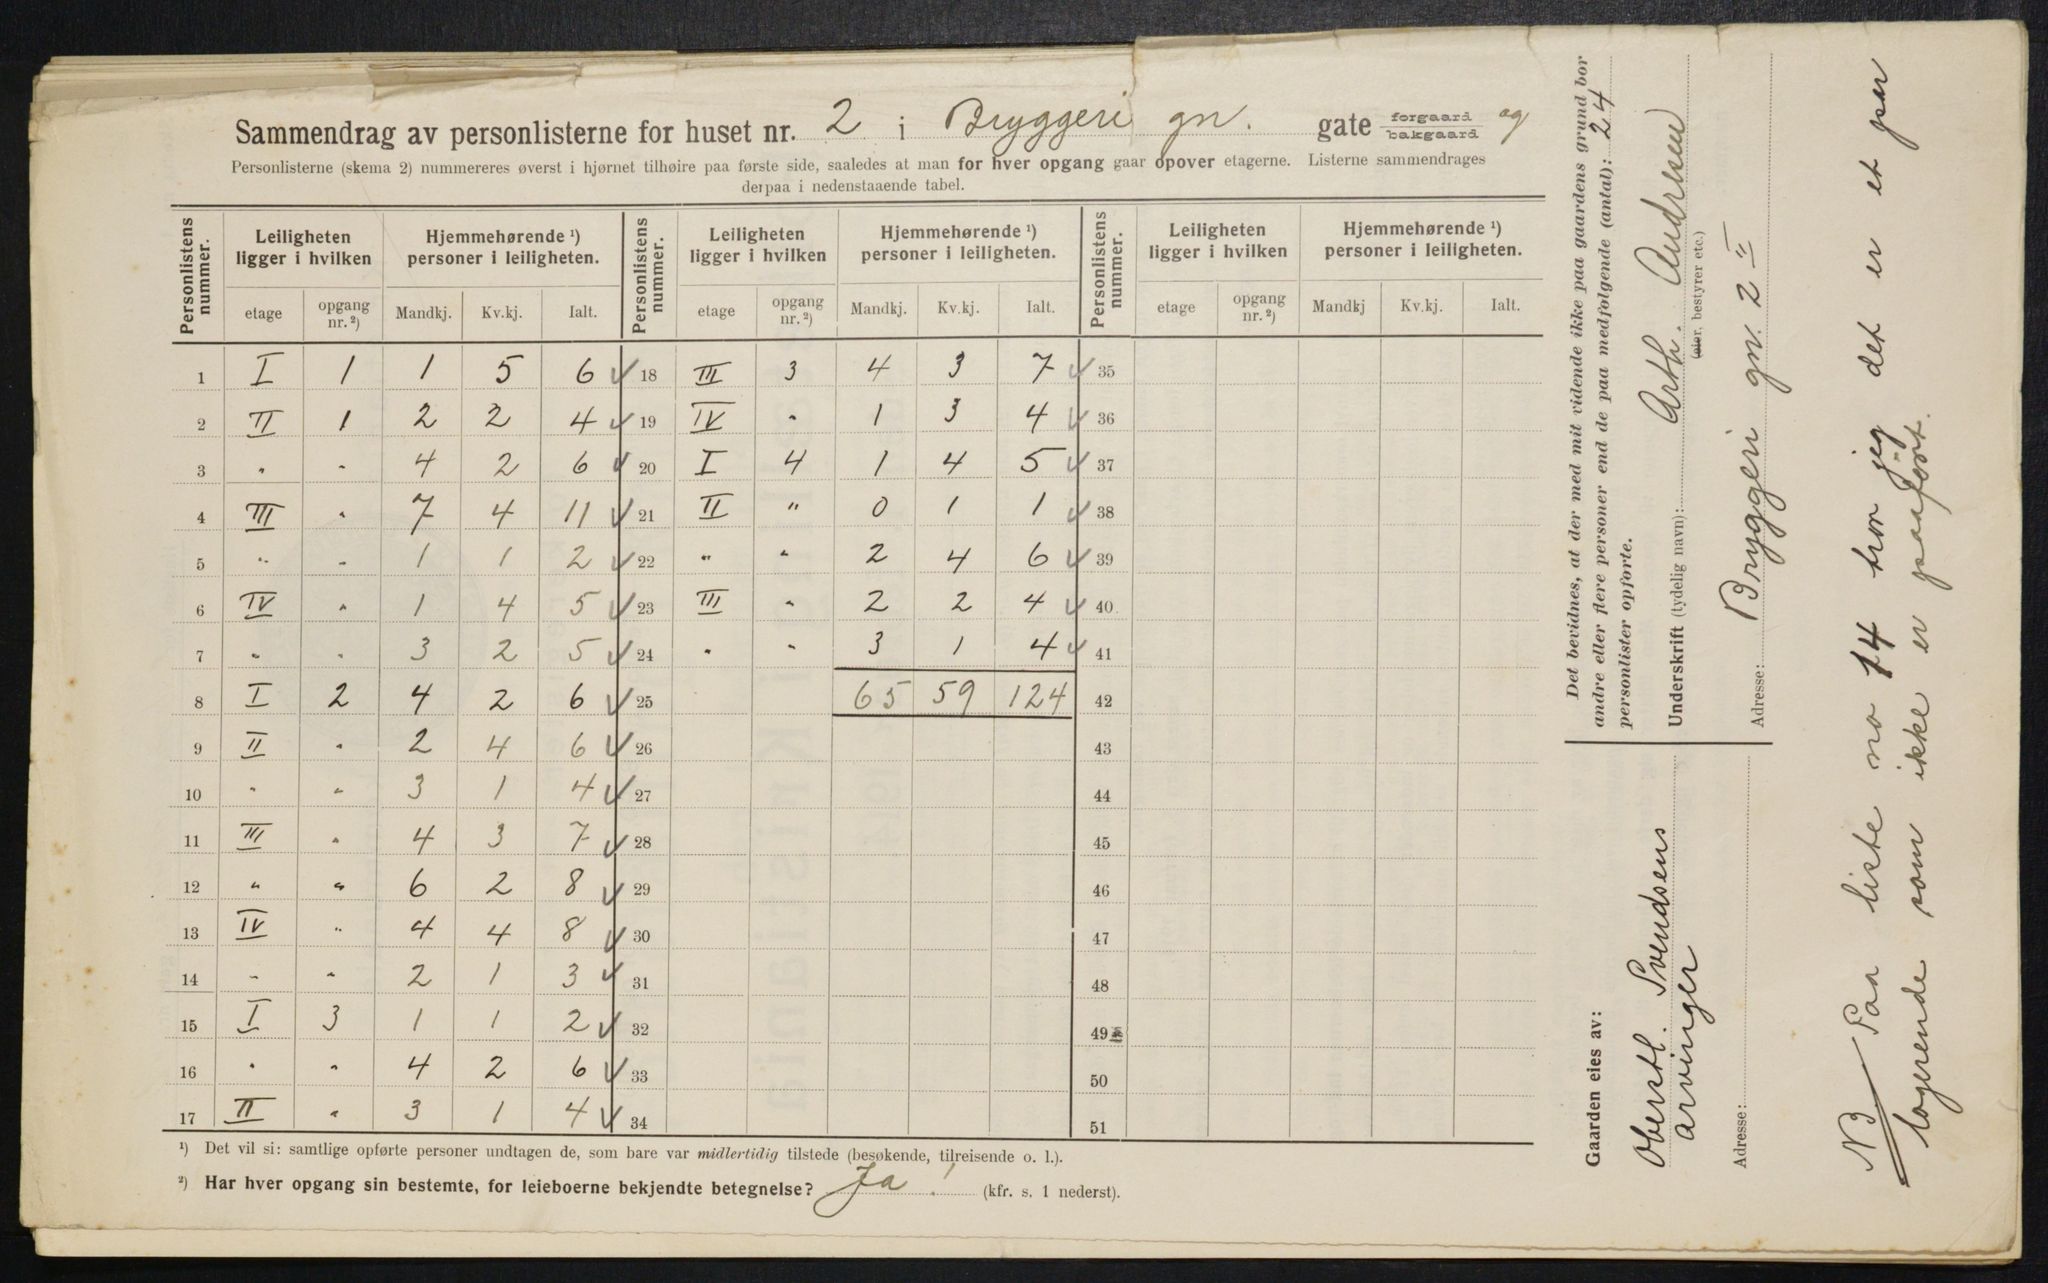 Sammendrag av personlisterne for huset nr. 2 i Bryggeri gn. gate forgaard bakgaard og
Personlisterne (skema 2) nummereres øverst i hjørnet tilhøire paa første side, saaledes at man for hver opgang gaar opover etagerne. Listerne sammendrages
derpaa i nedenstaaende tabel.
Personlistens nummer. Leiligheten ligger i hvilken Hjemmehørende ¹) personer i leiligheten. Personlistens nummer. Leiligheten ligger i hvilken Hjemmehørende ¹) personer i leiligheten. Personlistens nummer. Leiligheten ligger i hvilken Hjemmehørende ¹) personer i leiligheten.
etage opgang nr. ²) Mandkj. Kv.kj. Ialt. etage opgang nr. ²) Mandkj. Kv.kj. Ialt. etage opgang nr. ²) Mandkj Kv.kj. Ialt.
1 I 1 1 5 6 ✓ 18 III 3 4 3 7 ✓ 35
2 II 1 2 2 4 ✓ 19 IV " 1 3 4 ✓ 36
3 " " 4 2 6 ✓ 20 I 4 1 4 5 ✓ 37
4 III " 7 4 11 ✓ 21 II " 0 1 1 ✓ 38
5 " " 1 1 2 ✓ 22 " " 2 4 6 ✓ 39
6 IV " 1 4 5 ✓ 23 III " 2 2 4 ✓ 40
7 " " 3 2 5 ✓ 24 " " 3 1 4 ✓ 41
8 I 2 4 2 6 ✓ 25 65 59 124 42
9 II " 2 4 6 ✓ 26 43
10 " " 3 1 4 ✓ 27 44
11 III " 4 3 7 ✓ 28 45
12 " " 6 2 8 ✓ 29 46
13 IV " 4 4 8 ✓ 30 47
14 " " 2 1 3 ✓ 31 48
15 I 3 1 1 2 ✓ 32 49
16 " " 4 2 6 ✓ 33 50
17 II " 3 1 4 ✓ 34 51
¹) Det vil si: samtlige opførte personer undtagen de, som bare var midlertidig tilstede (besøkende, tilreisende o. l.).
²) Har hver opgang sin bestemte, for leieboerne bekjendte betegnelse? Ja! (kfr. s. 1 nederst).
Det bevidnes, at der med mit vidende ikke paa gaardens grund bor
andre eller flere personer end de paa medfølgende (antal): 24
personlister opførte.
Underskrift (tydelig navn): Arth. Andresen
(eier, bestyrer etc.)
Adresse: Bryggeri gn. 2 II
Gaarden eies av:
Oberstl. Svendsens
arvinger
Adresse:
NB. Paa liste no 14 tror jeg det er et par
logerende som ikke er paaført.